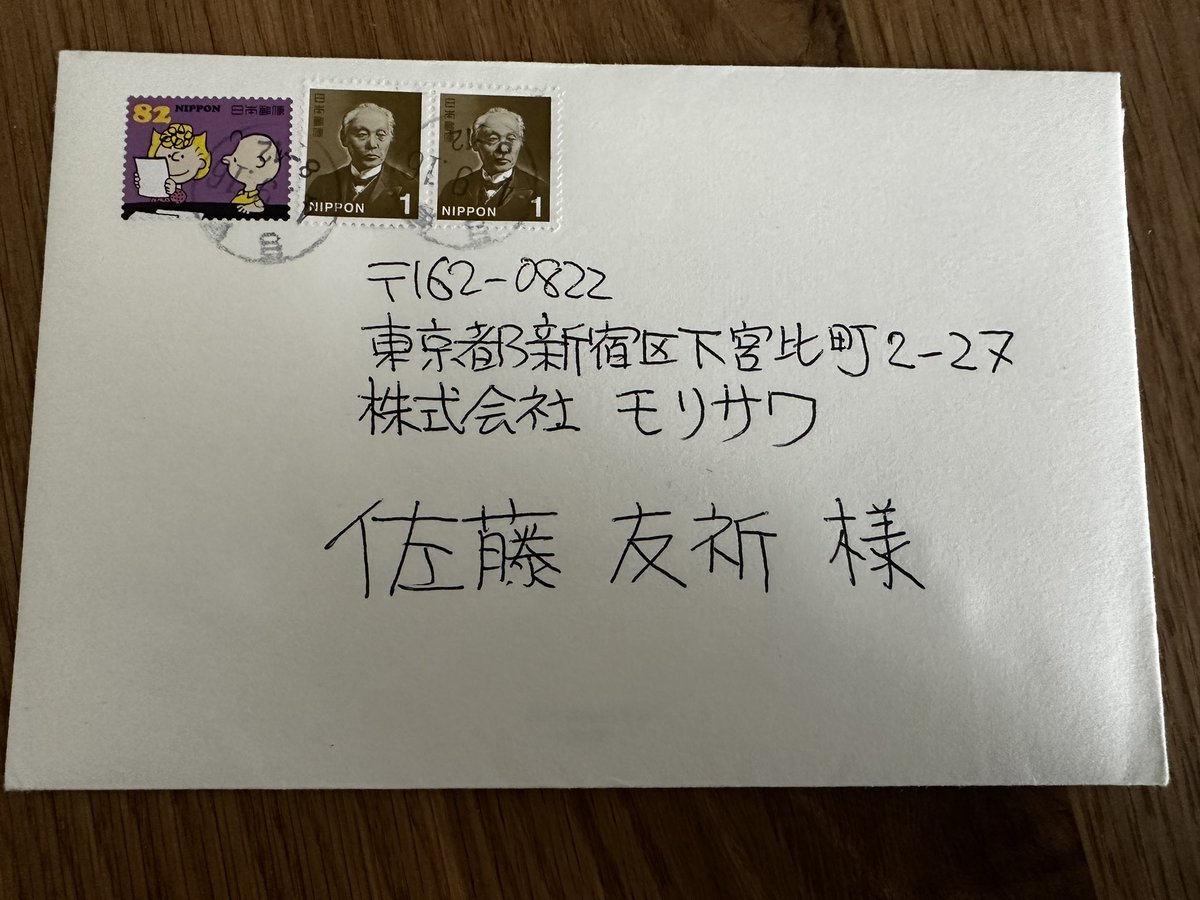 82 NIPPON 日本郵便
日本郵便
NIPPON 1
日本郵便
NIPPON 1
〒162-0822
東京都新宿区下宮比町2-27
株式会社 モリサワ
佐藤 友祈 様